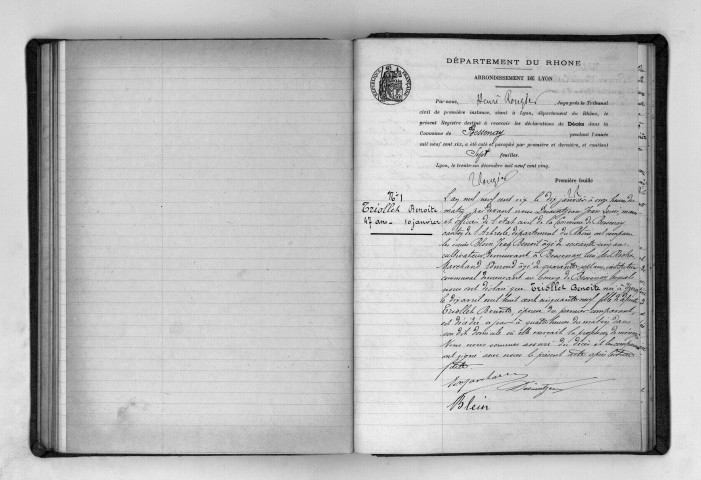 DÉPARTEMENT DU RHONE
ARRONDISSEMENT DE LYON
RÉPUBLIQUE FRANÇAISE
Par nous, Henri Rougier Juge près le Tribunal
civil de première instance, séant à Lyon, département du Rhône, le
présent Registre destiné à recevoir les déclarations de Décès dans la
Commune de Bessenay pendant l'année
mil neuf cent six, a été coté et paraphé par première et dernière, et contient
Sept feuilles.
Lyon, le trente-un décembre mil neuf cent cinq.
Rougier
Première feuille
N° 1
Triollet Benoite
47 ans - 10 janvier
L'an mil neuf cent six le dix janvier à onze heures du
matin, par devant nous Jean Louis, maire
et officier de l'état civil de la commune de Bessenay
canton de l'Arbresle, département du Rhône, ont comparu
les sieurs Blein Jean Benoit âgé de cinq ans
cultivateur demeurant à Bessenay, lieu de
Marchand âgé de quarante sept ans, instituteur
communal demeurant au bourg de Bessenay, lesquels
nous ont déclaré que Triollet Benoite née à
le dix avril mil huit cent cinquante neuf, fille de
Triollet Benoite, épouse du premier comparant,
est décédée ce jour à quatre heures du matin dans
son dit domicile où elle exerçait la profession de
Nous nous sommes assuré du décès et les comparants
ont signé avec nous le présent acte après lecture
faite
Blein